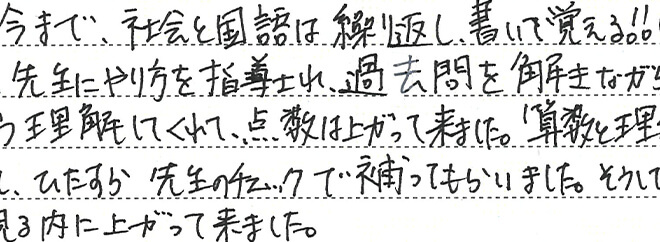 今まで、社会と国語は繰り返し、書いて覚える!!
先生にやり方を指導され、過去問を解きながら
う理解してくれて、点数は上がって来ました。「算数と理
し、ひたすら先生のチェックで補ってもらいました。そうして
見る内に上がって来ました。